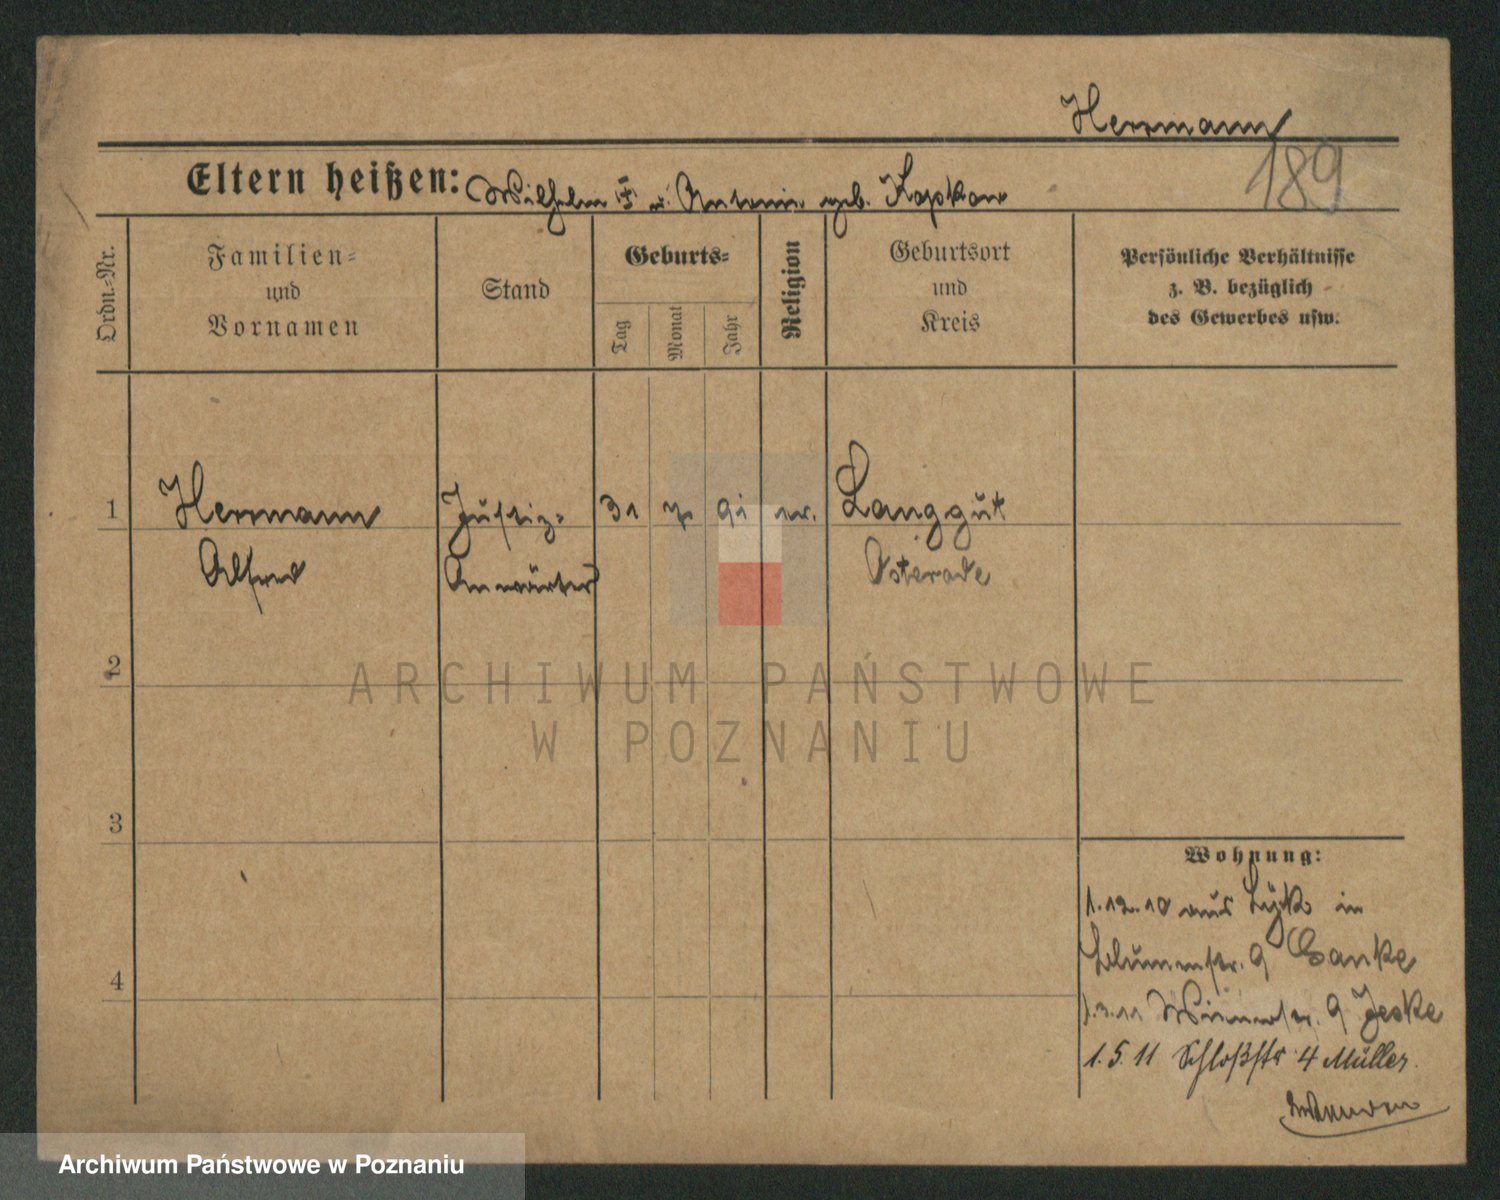 Herrmann
189
Eltern heißen: Wilhelm u. Antonie geb. Kopkow
Ordn.-Nr.
Familien-
und
Vornamen
Stand
Geburts-
Tag
Monat
Jahr
Religion
Geburtsort
und
Kreis
Persönliche Verhältnisse
z. B. bezüglich
des Gewerbes usw.
1 Herrmann Justiz- 31 7. 91 ev. Langgut
Alfred Anwärter Osterode
2
ARCHIWUM PAŃSTWOWE
W POZNANIU
3
Wohnung:
1.12.10 aus Lyk in
Blumenstr. 9 Sanke
4
1.3.11 9 Jeske
1.5.11 Schloßstr 4 Müller.
Archiwum Państwowe w Poznaniu